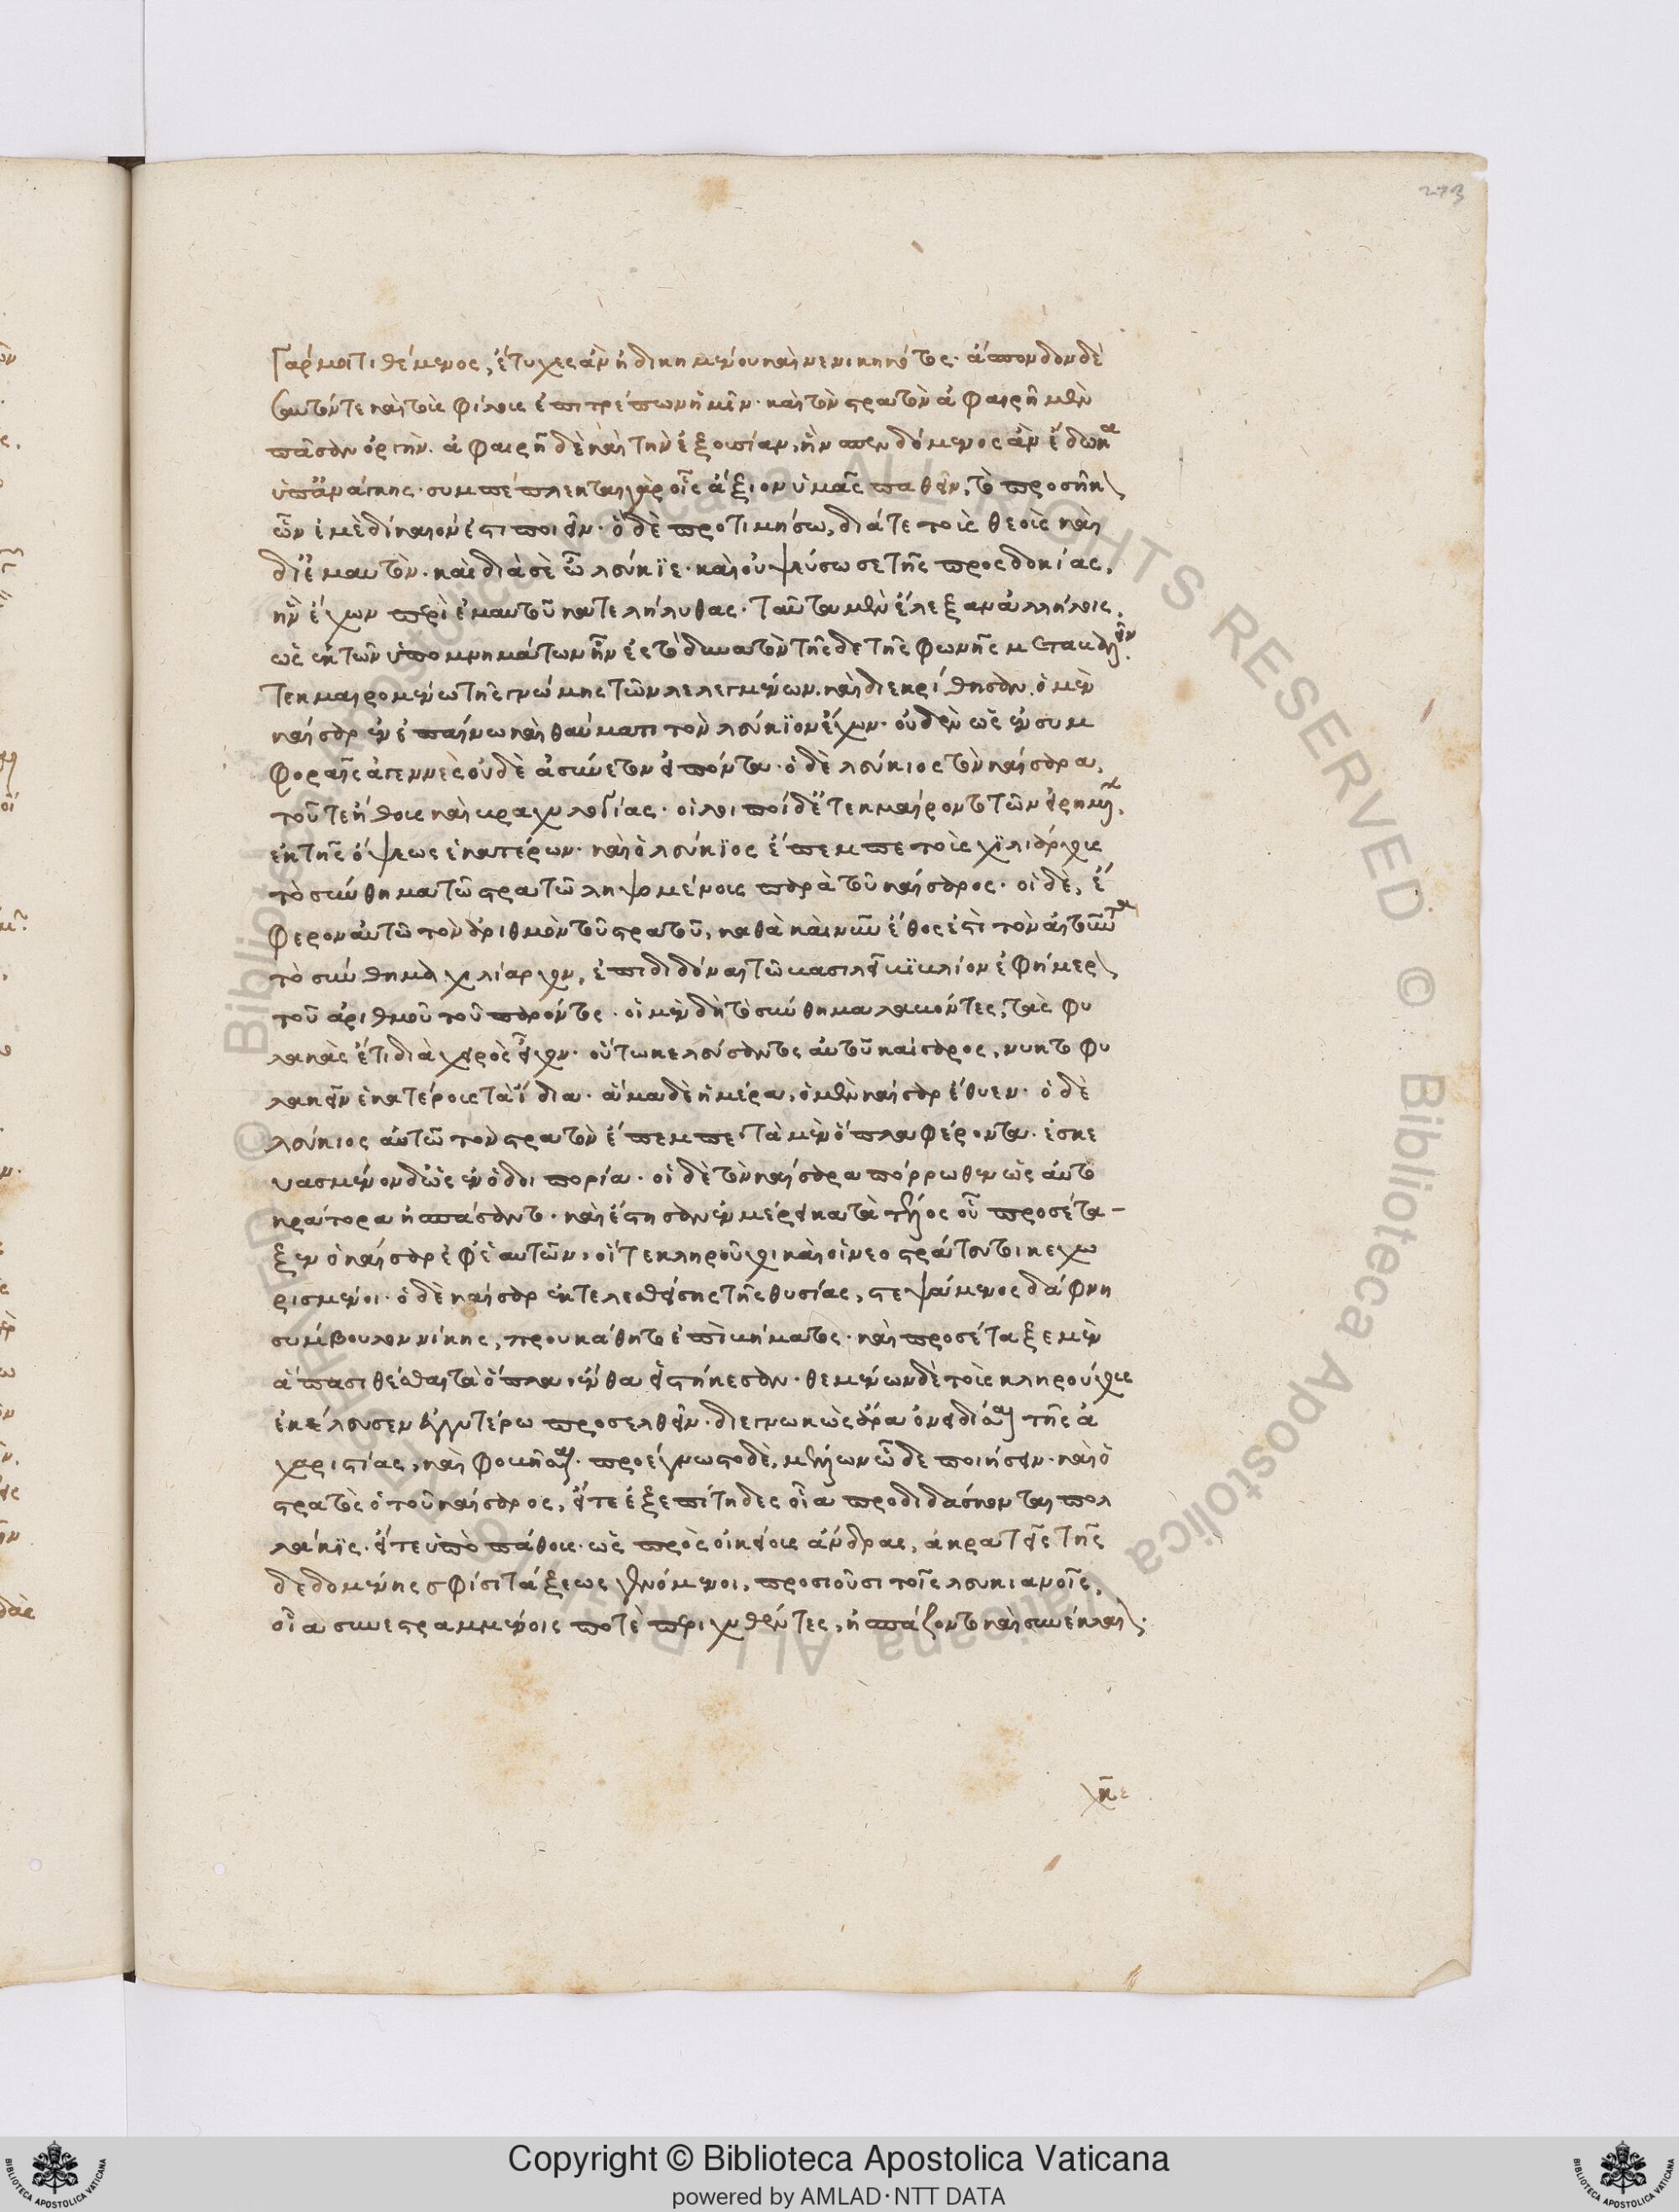 273
γάρ μοι τιθέμενος, ἔτυχες ἂν ἠδικημένου καὶ νενικηκότος. ἄσπονδον δὲ
σαυτόν τε καὶ τοὺς φίλους ἐπιτρέπων ἡμῖν. καὶ τὸν στρατὸν ἀφαιρῇ μὲν
πᾶσαν ὀργὴν. ἀφαιρῇ δὲ καὶ τὴν ἐξουσίαν, ἣν σπενδόμενος ἂν ἔδωκα
ὑπ' ἀνάγκης. συμπέπλεκται γὰρ οἷς ἄξιον ὑμᾶς παθεῖν, τὸ προσῆκον
ὧν ἐμὲ δίκαιόν ἐστι ποιεῖν. ὃ δὲ προτιμήσω, διά τε τοὺς θεοὺς καὶ
δι' ἐμαυτὸν. καὶ διὰ σὲ ὦ λούκϊε. καὶ οὐ ψεύσω σε τῆς προσδοκίας,
ἣν ἔχων περὶ ἐμαυτοῦ κατελήλυθας. ταῦτα μὲν ἔλεξαν ἀλλήλοις,
ὡς ἐκ τῶν ὑπομνημάτων ἦν ἐς τὸ δυνατὸν τῆσδε τῆς φωνῆς μεταβαλεῖν
τεκμαιρομένω τῆς γνώμης τῶν λελεγμένων. καὶ διεκρίθησαν. ὁ μὲν
καῖσαρ ἐν ἐπαίνω καὶ θαύματι τὸν λούκϊον ἔχων. οὐδὲν ὡς ἐν συμ
φοραῖς ἀγεννὲς οὐδὲ ἀσύνετον εἰπόντα. ὁ δὲ λούκιος τὸν καίσαρα,
τοῦ τε ἤθους καὶ βραχυλογίας. οἱ λοιποὶ δ' ἐτεκμαίροντο τῶν εἰρημένων
ἐκ τῆς ὄψεως ἑκατέρων. καὶ ὁ λούκϊος ἔπεμπε τοὺς χϊλιάρχους
τὸ σύνθημα τῷ στρατῷ ληψομένους παρὰ τοῦ καίσαρος. οἱ δὲ, ἔ
φερον αὐτῷ τὸν ἀριθμὸν τοῦ στρατοῦ, καθὰ καὶ νῦν ἔθος ἐστὶ τὸν αἰτοῦντα
τὸ σύνθημα χιλίαρχον, ἐπιδιδόναι τῷ βασιλεῖ βϊβλίον ἐφήμερον
τοῦ ἀριθμοῦ τοῦ παρόντος. οἱ μὲν δὴ τὸ σύνθημα λαβόντες, τὰς φυ
λακὰς ἔτι διὰ χειρὸς εἶχον. οὕτω κελεύσαντος αὐτοῦ καίσαρος, νυκτοφυ
λακεῖν ἑκατέρους τὰ ἴδια. ἅμα δὲ ἡμέρα, ὁ μὲν καῖσαρ ἔθυεν. ὁ δὲ
λούκιος αὐτῷ τὸν στρατὸν ἔπεμπε τὰ μὲν ὅπλα φέροντα. ἐσκε
υασμένον δ' ὡς ἐν ὁδοιπορία. οἱ δὲ τὸν καίσαρα πόρρωθεν ὡς αὐτο
κράτορα ἠσπάσαντο. καὶ ἔστησαν ἐν μέρει κατὰ τέλος οὗ προσέτα-
ξεν ὁ καῖσαρ ἐφ' ἑαυτῶν, οἵ τε κληροῦχοι καὶ οἱ νεοστράτευτοι κεχω
ρισμένοι. ὁ δὲ καῖσαρ ἐκτελεσθείσης τῆς θυσίας, στεψάμενος δάφνη
συμβόλον νίκης, προυκάθητο ἐπὶ βήματος. καὶ προσέταξε μὲν
ἅπασι θέσθαι τὰ ὅπλα, ἔνθα εἱστήκεσαν. θεμένων δὲ τοὺς κληρούχους
ἐκέλευσεν ἐγγυτέρω προσελθεῖν. διεγνωκὼς ἄρα ὀνειδίσαι τῆς ἀ
χαριστίας, καὶ φοβῆσαι. προέγνωστο δὲ, μέλλων ὧδε ποιήσειν. καὶ ὁ
στρατὸς ὁ τοῦ καίσαρος, εἴτε ἐξεπίτηδες οἷα προδιδάσκονται πολ
λάκϊς. εἴτε ὑπὸ πάθους. ὡς πρὸς οἰκείους ἄνδρας, ἀκρατεῖς τῆς
δεδομένης σφίσι τάξεως γενόμενοι, προσιοῦσι τοῖς λουκιανοῖς,
οἷα συνεστραμμένοις ποτὲ περιχυθέντες, ἠσπάζοντο καὶ συνέκλαιον.